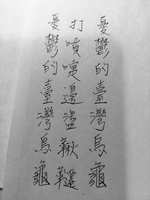 憂鬱的臺灣烏龜
打噴嚏邊盪鞦韆
憂鬱的臺灣烏龜